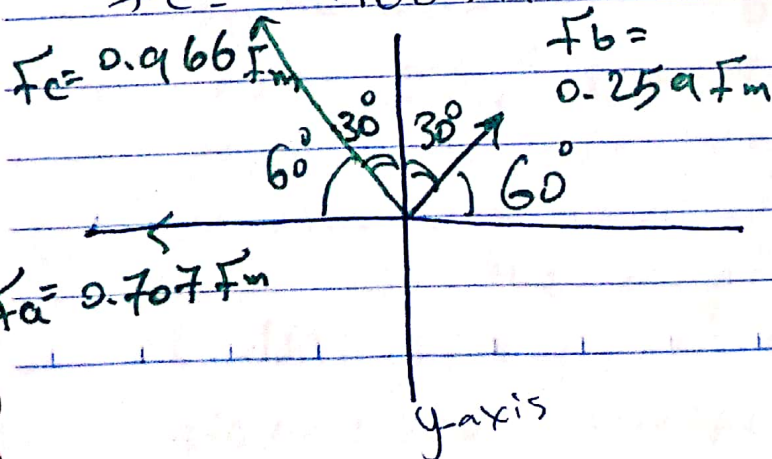 Fb =
Fc= 0.966 Fm
0.259 Fm
30° 30°
60° 60°
Fa= 0.707 Fm
y-axis